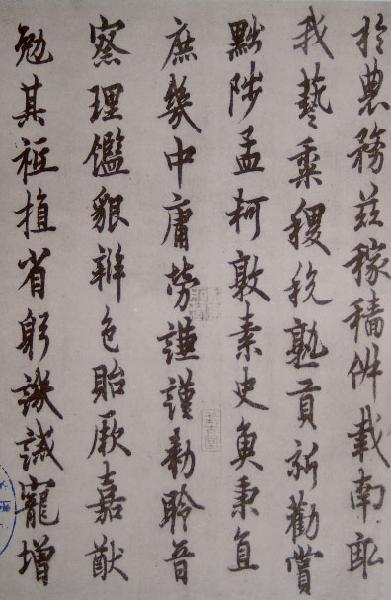 於農務茲稼穡俶載南畝
我藝黍稷稅熟貢新勸賞
黜陟孟軻敦素史魚秉直
庶幾中庸勞謙謹勅聆音
察理鑑貌辨色貽厥嘉猷
勉其祗植省躬譏誡寵增